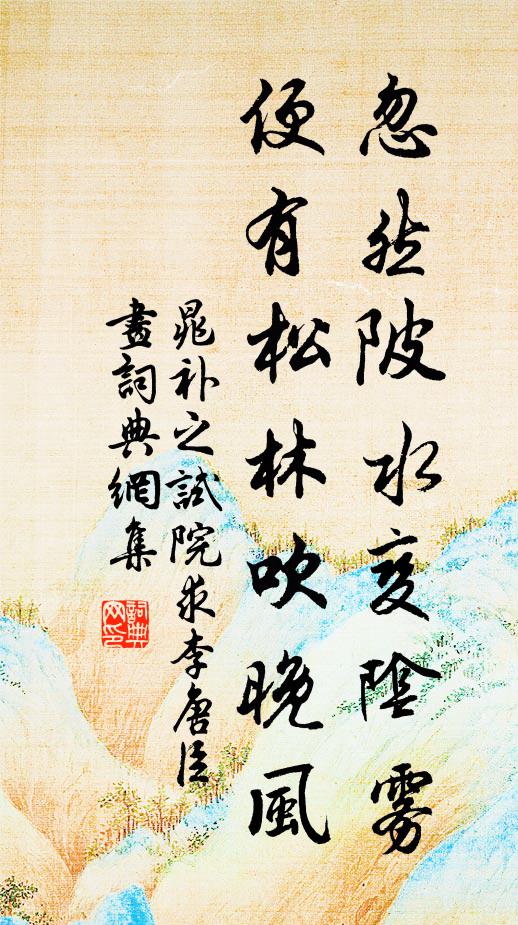 忽然陂水变陰雾
便有松林吹晚風
晁补之試院求李唐臣
畫詞典網集
詞典网印